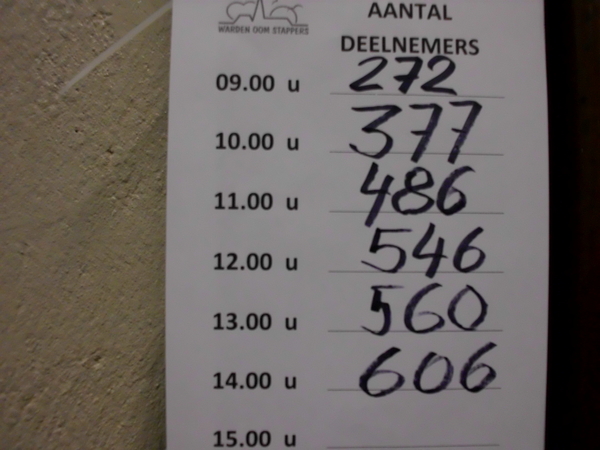 WARDEN OOM STAPPERS
AANTAL
DEELNEMERS
09.00 u 272
10.00 u 377
11.00 u 486
12.00 u 546
13.00 u 560
14.00 u 606
15.00 u